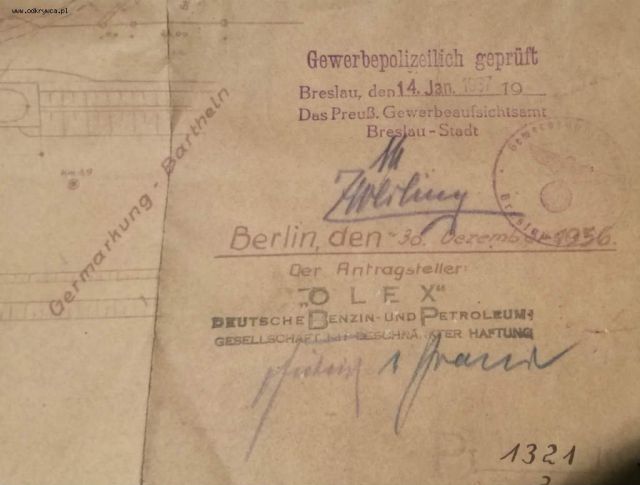 www.odkrywca.pl
Gewerbepolizeilich geprüft
Breslau, den 14. Jan. 1937 19
Das Preuß. Gewerbeaufsichtsamt
Breslau-Stadt
Germarkung - Bartheln
Berlin, den 30. Dezember 1936.
Der Antragsteller:
"OLEX"
DEUTSCHE BENZIN- UND PETROLEUM-
GESELLSCHAFT MIT BESCHRÄNKTER HAFTUNG
1321